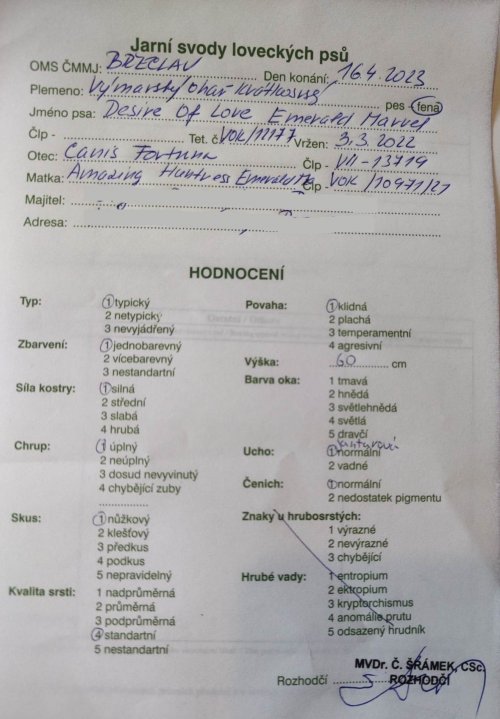 Jarní svody loveckých psů
OMS ČMMJ: BŘECLAV Den konání: 16.4. 2023
Plemeno: Výmarský ohař krátkosrstý pes - fena
Jméno psa: Desire Of Love Emerald Marvel
Člp - Tet. č. VOK/11177 Vržen: 3.3. 2022
Otec: Canis Fortuna Člp - VII-13719
Matka: Amazing Huntress Emerald Člp - VOK/10971/21
Majitel:
Adresa:
HODNOCENÍ
Typ: 1 typický
2 netypický
3 nevyjádřený
Zbarvení: 1 jednobarevný
2 vícebarevný
3 nestandartní
Síla kostry: 1 silná
2 střední
3 slabá
4 hrubá
Chrup: 1 úplný
2 neúplný
3 dosud nevyvinutý
4 chybějící zuby
Skus: 1 nůžkový
2 klešťový
3 předkus
4 podkus
5 nepravidelný
Kvalita srsti: 1 nadprůměrná
2 průměrná
3 podprůměrná
4 standartní
5 nestandartní
Povaha: 1 klidná
2 plachá
3 temperamentní
4 agresivní
Výška: 60 cm
Barva oka: 1 tmavá
2 hnědá
3 světlehnědá
4 světlá
5 dravčí
jantarová
Ucho: 1 normální
2 vadné
Čenich: 1 normální
2 nedostatek pigmentu
Znaky u hrubosrstých:
1 výrazné
2 nevýrazné
3 chybějící
Hrubé vady: 1 entropium
2 ektropium
3 kryptorchismus
4 anomálie prutu
5 odsazený hrudník
MVDr. Č. ŠRÁMEK, CSc.
Rozhodčí ROZHODČÍ